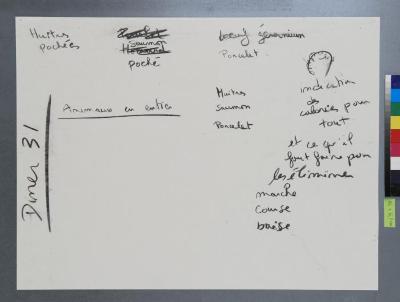 Huitres
pochées
saumon
poché
boeuf géranium
Poncelet
Animaux en entier
Huitres
Saumon
Poncelet
indication
des
calories pour
tout
et ce qu'il
faut faire pour
les éliminer
marche
course
baise
Diner 31